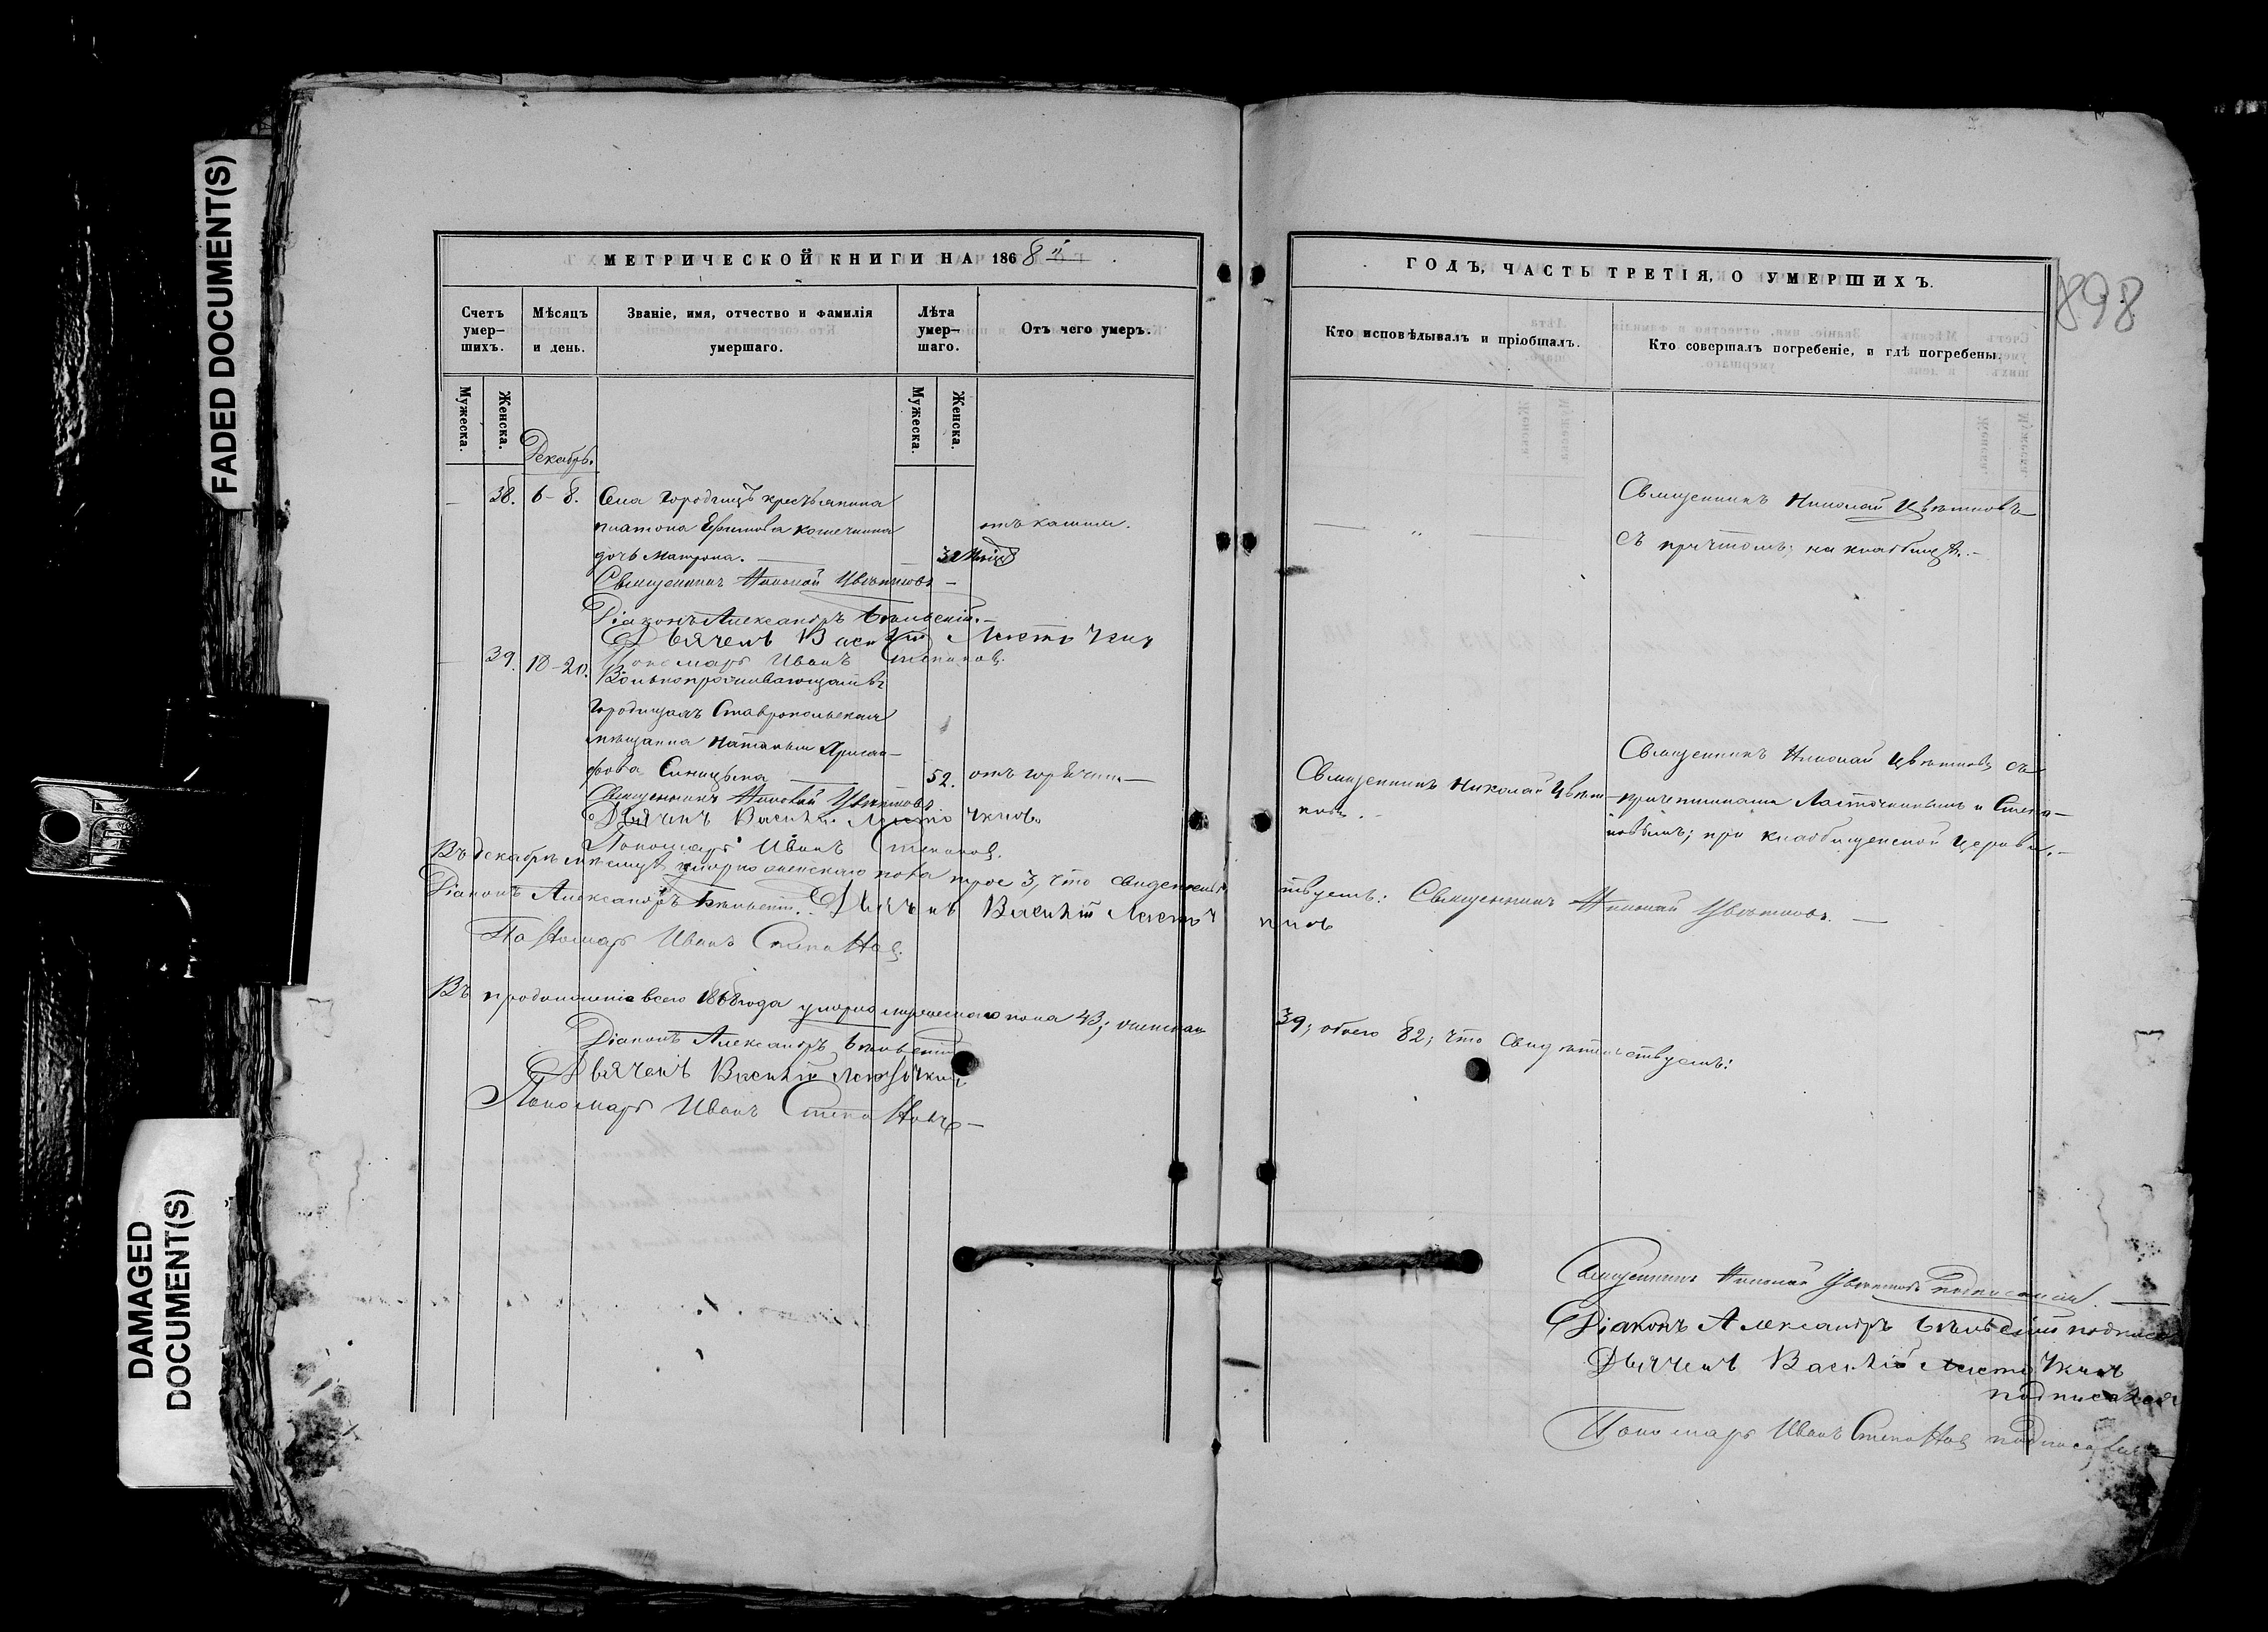 FADED DOCUMENT(S)
DAMAGED
DOCUMENT(S)
МЕТРИЧЕСКОЙ КНИГИ НА 1868 й
Счетъ умер–шихъ.
Мѣсяцъ и день.
Званіе, имя, отчество и фамилія умершаго.
Лѣта умер–шаго.
Отъ чего умеръ.
Мужеска.
Женска.
Мужеска.
Женска.
Декабрь.
38. 6–8. Села Городищъ крестьянина
платона Ефимова
дочь Матрона. —
отъ кашля.
Священникъ Николай Цвѣтковъ
Діаконъ Александръ Бѣльскій.
Дьячекъ Василій Ласточкинъ
Пономарь Иванъ Степановъ.
39. 18–20. Вольнопроживающая въ
Городищахъ Ставропольская
мѣщанка Наталья
Синицына 52. отъ горячки
Священникъ Николай Цвѣтковъ
Дьячекъ Василій Ласточкинъ
Пономарь Иванъ Степановъ.
Въ декабрѣ мѣсяцѣ умерло женскаго пола трое 3, что свидетельствуемъ: Священникъ Николай Цвѣтковъ. —
Діаконъ Александръ Бѣльскій. Дьячекъ Василій Ласточкинъ
Пономарь Иванъ Степановъ.
Въ продолженіе всего 1868 года умерло мужескаго пола 43; женскаго 39; обоего 82; что свидѣтельствуемъ:
Діаконъ Александръ Бѣльскій
Дьячекъ Василій Ласточкинъ
Пономарь Иванъ Степановъ
ГОДЪ, ЧАСТЬ ТРЕТІЯ, О УМЕРШИХЪ.
898
Кто исповѣдывалъ и пріобщалъ.
Кто совершалъ погребеніе, и гдѣ погребены.
Священникъ Николай Цвѣтковъ
съ причтомъ; на кладбищѣ. –
Священникъ Николай Цвѣт–
ковъ. –
Священникъ Николай Цвѣтковъ съ
причетниками Ласточкинымъ и Степа–
новымъ; при кладбищенской церкви. –
Священникъ Николай Цвѣтковъ подписался. —
Діаконъ Александръ Бѣльскій
Дьячекъ Василій Ласточкинъ
подписался
Пономарь Иванъ Степановъ подписался